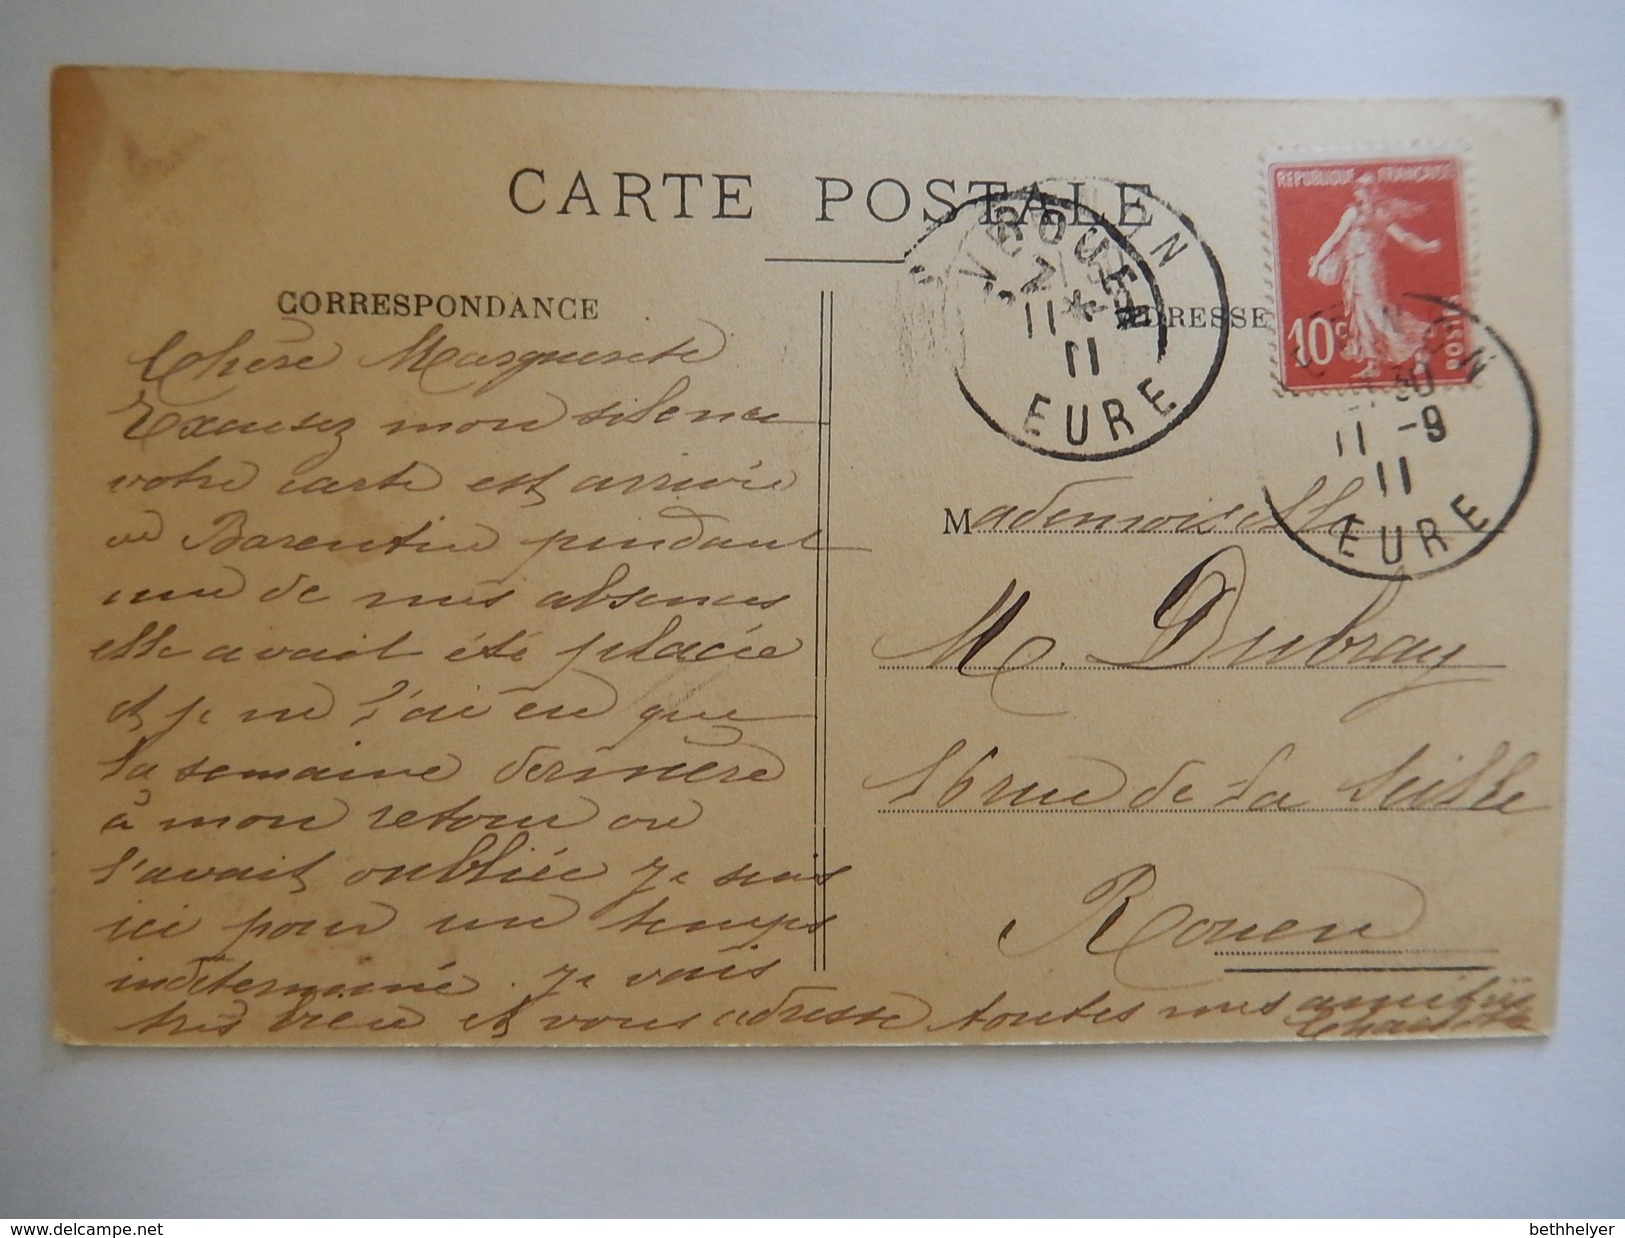 CARTE POSTALE
CORRESPONDANCE
ADRESSE
REPUBLIQUE FRANÇAISE
10c
POSTE
ROUEN
11
11
EURE
30
11 -9
11
EURE
Chère Marguerite
Excusez mon silence
votre carte est arrivée
à Barentin pendant
une de mes absences
elle avait été placée
et je ne l'ai eu que
la semaine dernière
à mon retour on
l'avait oubliée je suis
ici pour un temps
indéterminé. Je vais
très bien et vous adresse toutes mes amitiés
Mademoiselle
M. Dubray
16 rue de la Seille
Rouen
www.delcampe.net
bethhelyer